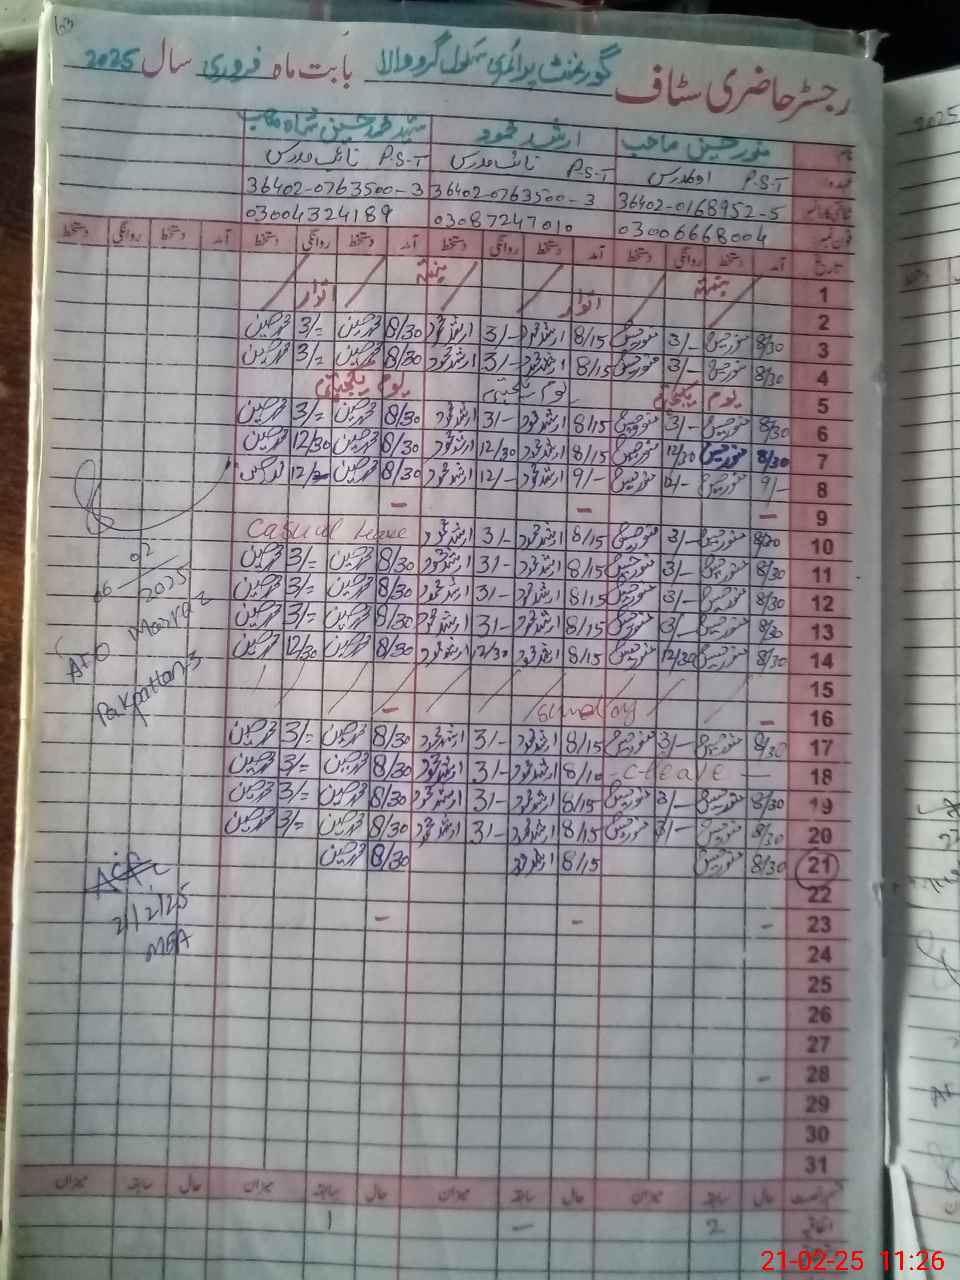 63
رجسٹر حاضری سٹاف گورنمنٹ پرائمری سکول گرووالا بابت ماہ فروری سال 2025
نام منور حسین صاحب ارشد محمود سید محمد حسین شاہ صاحب
عہدہ P.S.T P.S.T نائب مدرس P.S.T نائب مدرس
36402-0168952-5 36402-0763500-3 36402-0763500-3
فون نمبر 03006668004 03087247010 03004324189
تاریخ آمد دستخط روانگی دستخط آمد دستخط روانگی دستخط آمد دستخط روانگی دستخط آمد دستخط روانگی دستخط
1 ہفتہ ہفتہ
2 اتوار اتوار
3 8/30 منور حسین 3/- منور حسین 8/15 ارشد محمود 3/- ارشد محمود 8/30 محمد حسین 3/= محمد حسین
4 8/30 منور حسین 3/- منور حسین 8/15 ارشد محمود 3/- ارشد محمود 8/30 محمد حسین 3/= محمد حسین
5 یوم یکجہتی یوم یکجہتی یوم یکجہتی
6 8/30 منور حسین 3/- منور حسین 8/15 ارشد محمود 3/- ارشد محمود 8/30 محمد حسین 3/= محمد حسین
7 8/30 منور حسین 12/30 منور حسین 8/15 ارشد محمود 12/30 ارشد محمود 8/30 محمد حسین 12/30 محمد حسین
8 9/- منور حسین 12/- منور حسین 9/- ارشد محمود 12/- ارشد محمود 8/30 محمد حسین
9 - - -
10 8/30 منور حسین 3/- منور حسین 8/15 ارشد محمود 3/- ارشد محمود Casual Leave
11 8/30 منور حسین 3/- منور حسین 8/15 ارشد محمود 3/- ارشد محمود 8/30 محمد حسین 3/= محمد حسین
12 8/30 منور حسین 3/- منور حسین 8/15 ارشد محمود 3/- ارشد محمود 8/30 محمد حسین 3/= محمد حسین
13 8/30 منور حسین 3/- منور حسین 8/15 ارشد محمود 3/- ارشد محمود 8/30 محمد حسین 3/= محمد حسین
14 8/30 منور حسین 12/30 منور حسین 8/15 ارشد محمود 12/30 ارشد محمود 8/30 محمد حسین 12/30 محمد حسین
15
16 - Sunday -
17 8/30 منور حسین 3/- منور حسین 8/15 ارشد محمود 3/- ارشد محمود 8/30 محمد حسین 3/= محمد حسین
18 - C-leave - 8/10 ارشد محمود 3/- ارشد محمود 8/30 محمد حسین 3/= محمد حسین
19 8/30 منور حسین 3/- منور حسین 8/15 ارشد محمود 3/- ارشد محمود 8/30 محمد حسین 3/= محمد حسین
20 8/30 منور حسین 3/- منور حسین 8/15 ارشد محمود 3/- ارشد محمود 8/30 محمد حسین 3/= محمد حسین
21 8/30 منور حسین 8/15 ارشد محمود 8/30 محمد حسین
22
23 - - -
24
25
26
27
28 -
29
30
31
حال سابقہ میزان حال سابقہ میزان حال سابقہ میزان حال سابقہ میزان
اتفاقیہ 2 - 1
02
2025
AEO Markaz
Pakpattan-3
21/2/25
MEA
2025
21-02-25 11:26